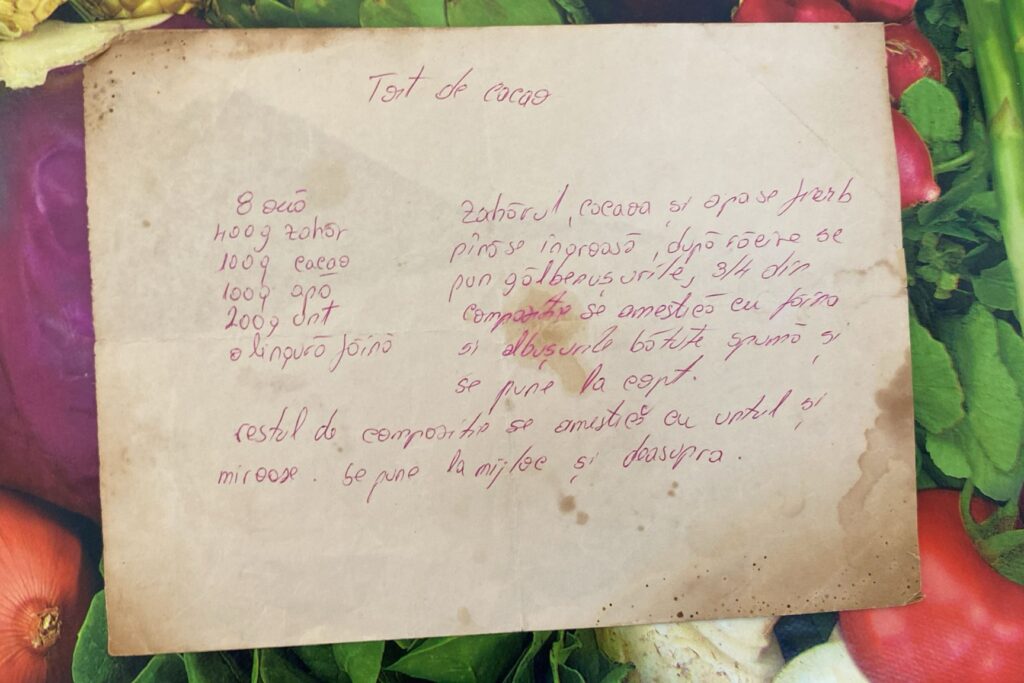 Tort de cacao
8 ouă
400g zahăr
100g cacao
100g apă
200g unt
o lingură făină
zahărul, cacaoa și apa se fierb
până se îngroașă, după răcire se
pun gălbenușurile, 3/4 din
compoziție se amestică cu făina
si albușurile bătute spumă și
se pune la copt.
restul de compoziție se amestică cu untul și
miroase. Se pune la mijloc și deasupra.